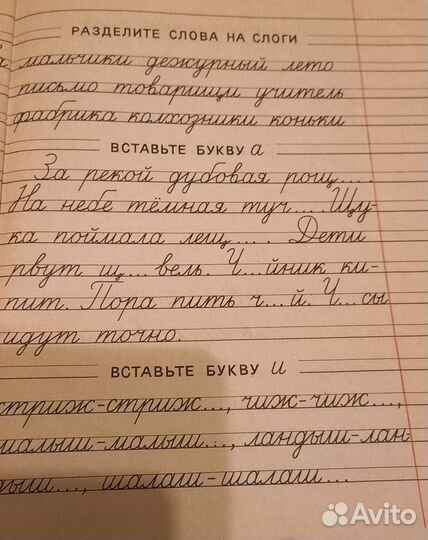 РАЗДЕЛИТЕ СЛОВА НА СЛОГИ
мальчики дежурный лето
письмо товарищи учитель
фабрика колхозники коньки
ВСТАВЬТЕ БУКВУ а
За рекой дубовая рощ....
На небе тёмная туч.... Щу-
ка поймала лещ.... Дети
рвут щ...вель. Ч...йник ки-
пит. Пора пить ч...й. Ч...сы
идут точно.
ВСТАВЬТЕ БУКВУ и
стриж-стриж..., чиж-чиж...,
малыш-малыш..., ландыш-лан-
дыш..., шалаш-шалаш...
Avito